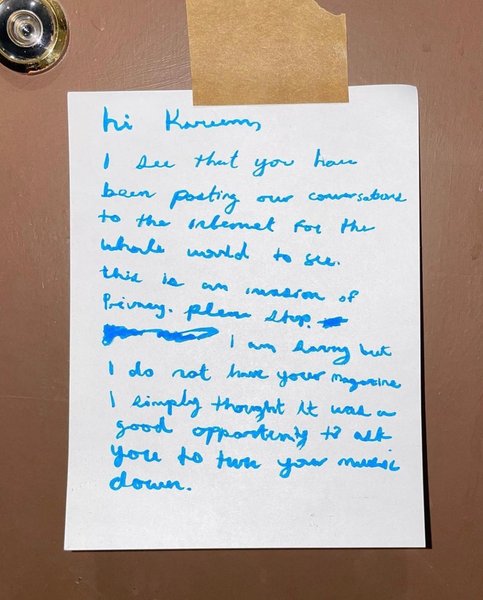 hi Kareem,
I see that you have
been posting our conversations
to the internet for the
whole world to see.
this is an invasion of
Privacy. please stop.
I am sorry but
I do not have your magazine
I simply thought it was a
good opportunity to ask
you to turn your music
down.